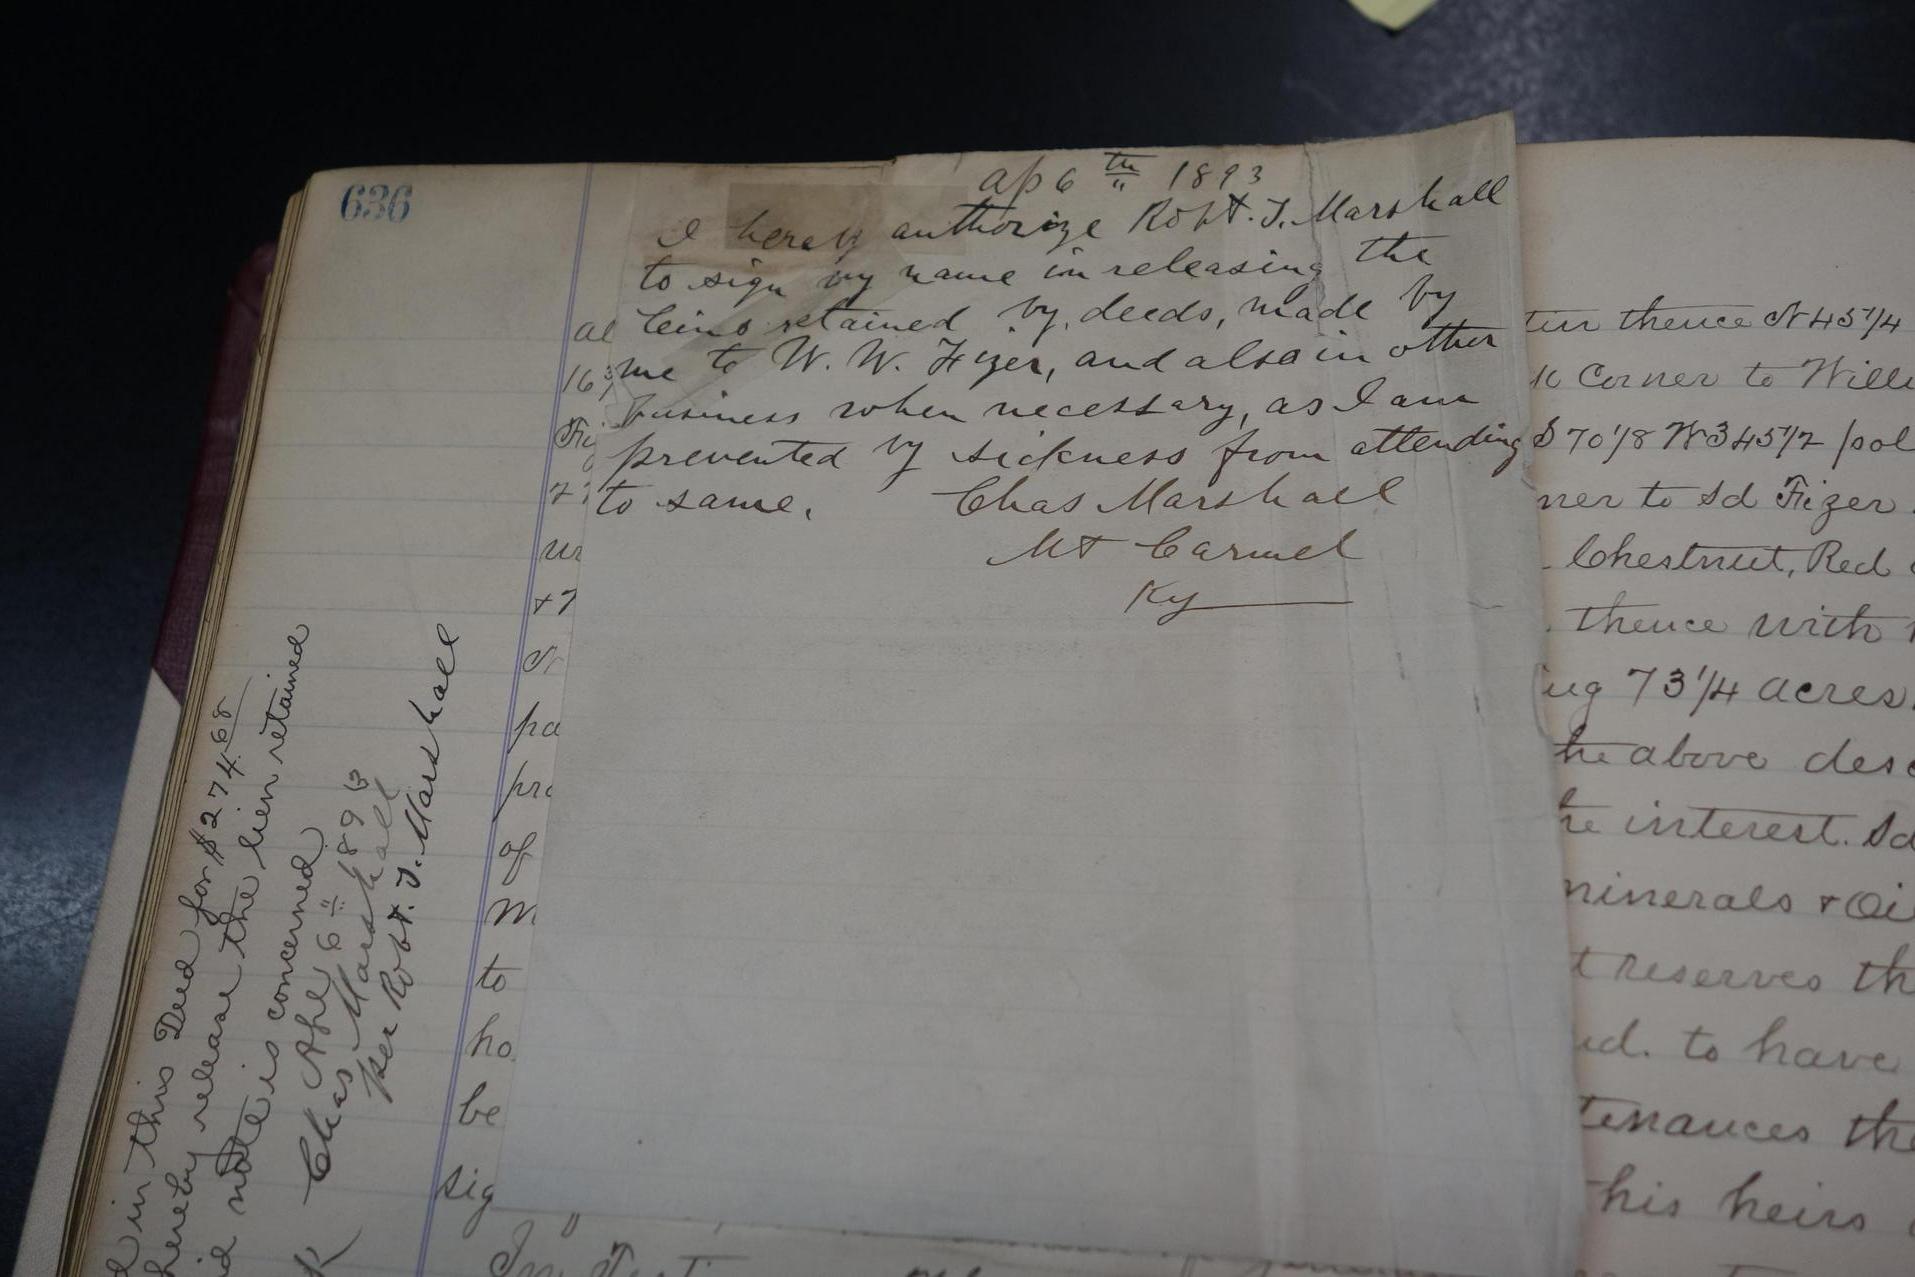 636
ap 6th 1893
I hereby authorize Robt. T. Marshall
to sign my name in releasing the
leins retained by deeds, made by
me to W. W. Fizer, and also in other
business when necessary, as I am
prevented by sickness from attending
to same. Chas Marshall
Mt Carmel
Ky
in this Deed for $274.68
hereby release the lien retained
note is concerned
Apl 6" 1893
Chas Marshall
per Robt. T. Marshall
al
16
Fi
of
to
ho
be
sig
thence N 45 1/4
Corner to
S 70 1/8 W 345 1/2 pol
to Sd Fizer
Chestnut, Red
thence with
73 1/4 acres.
he above desc
interest. Sd
minerals + Oi
reserves th
to have
tenances the
his heirs
In Test